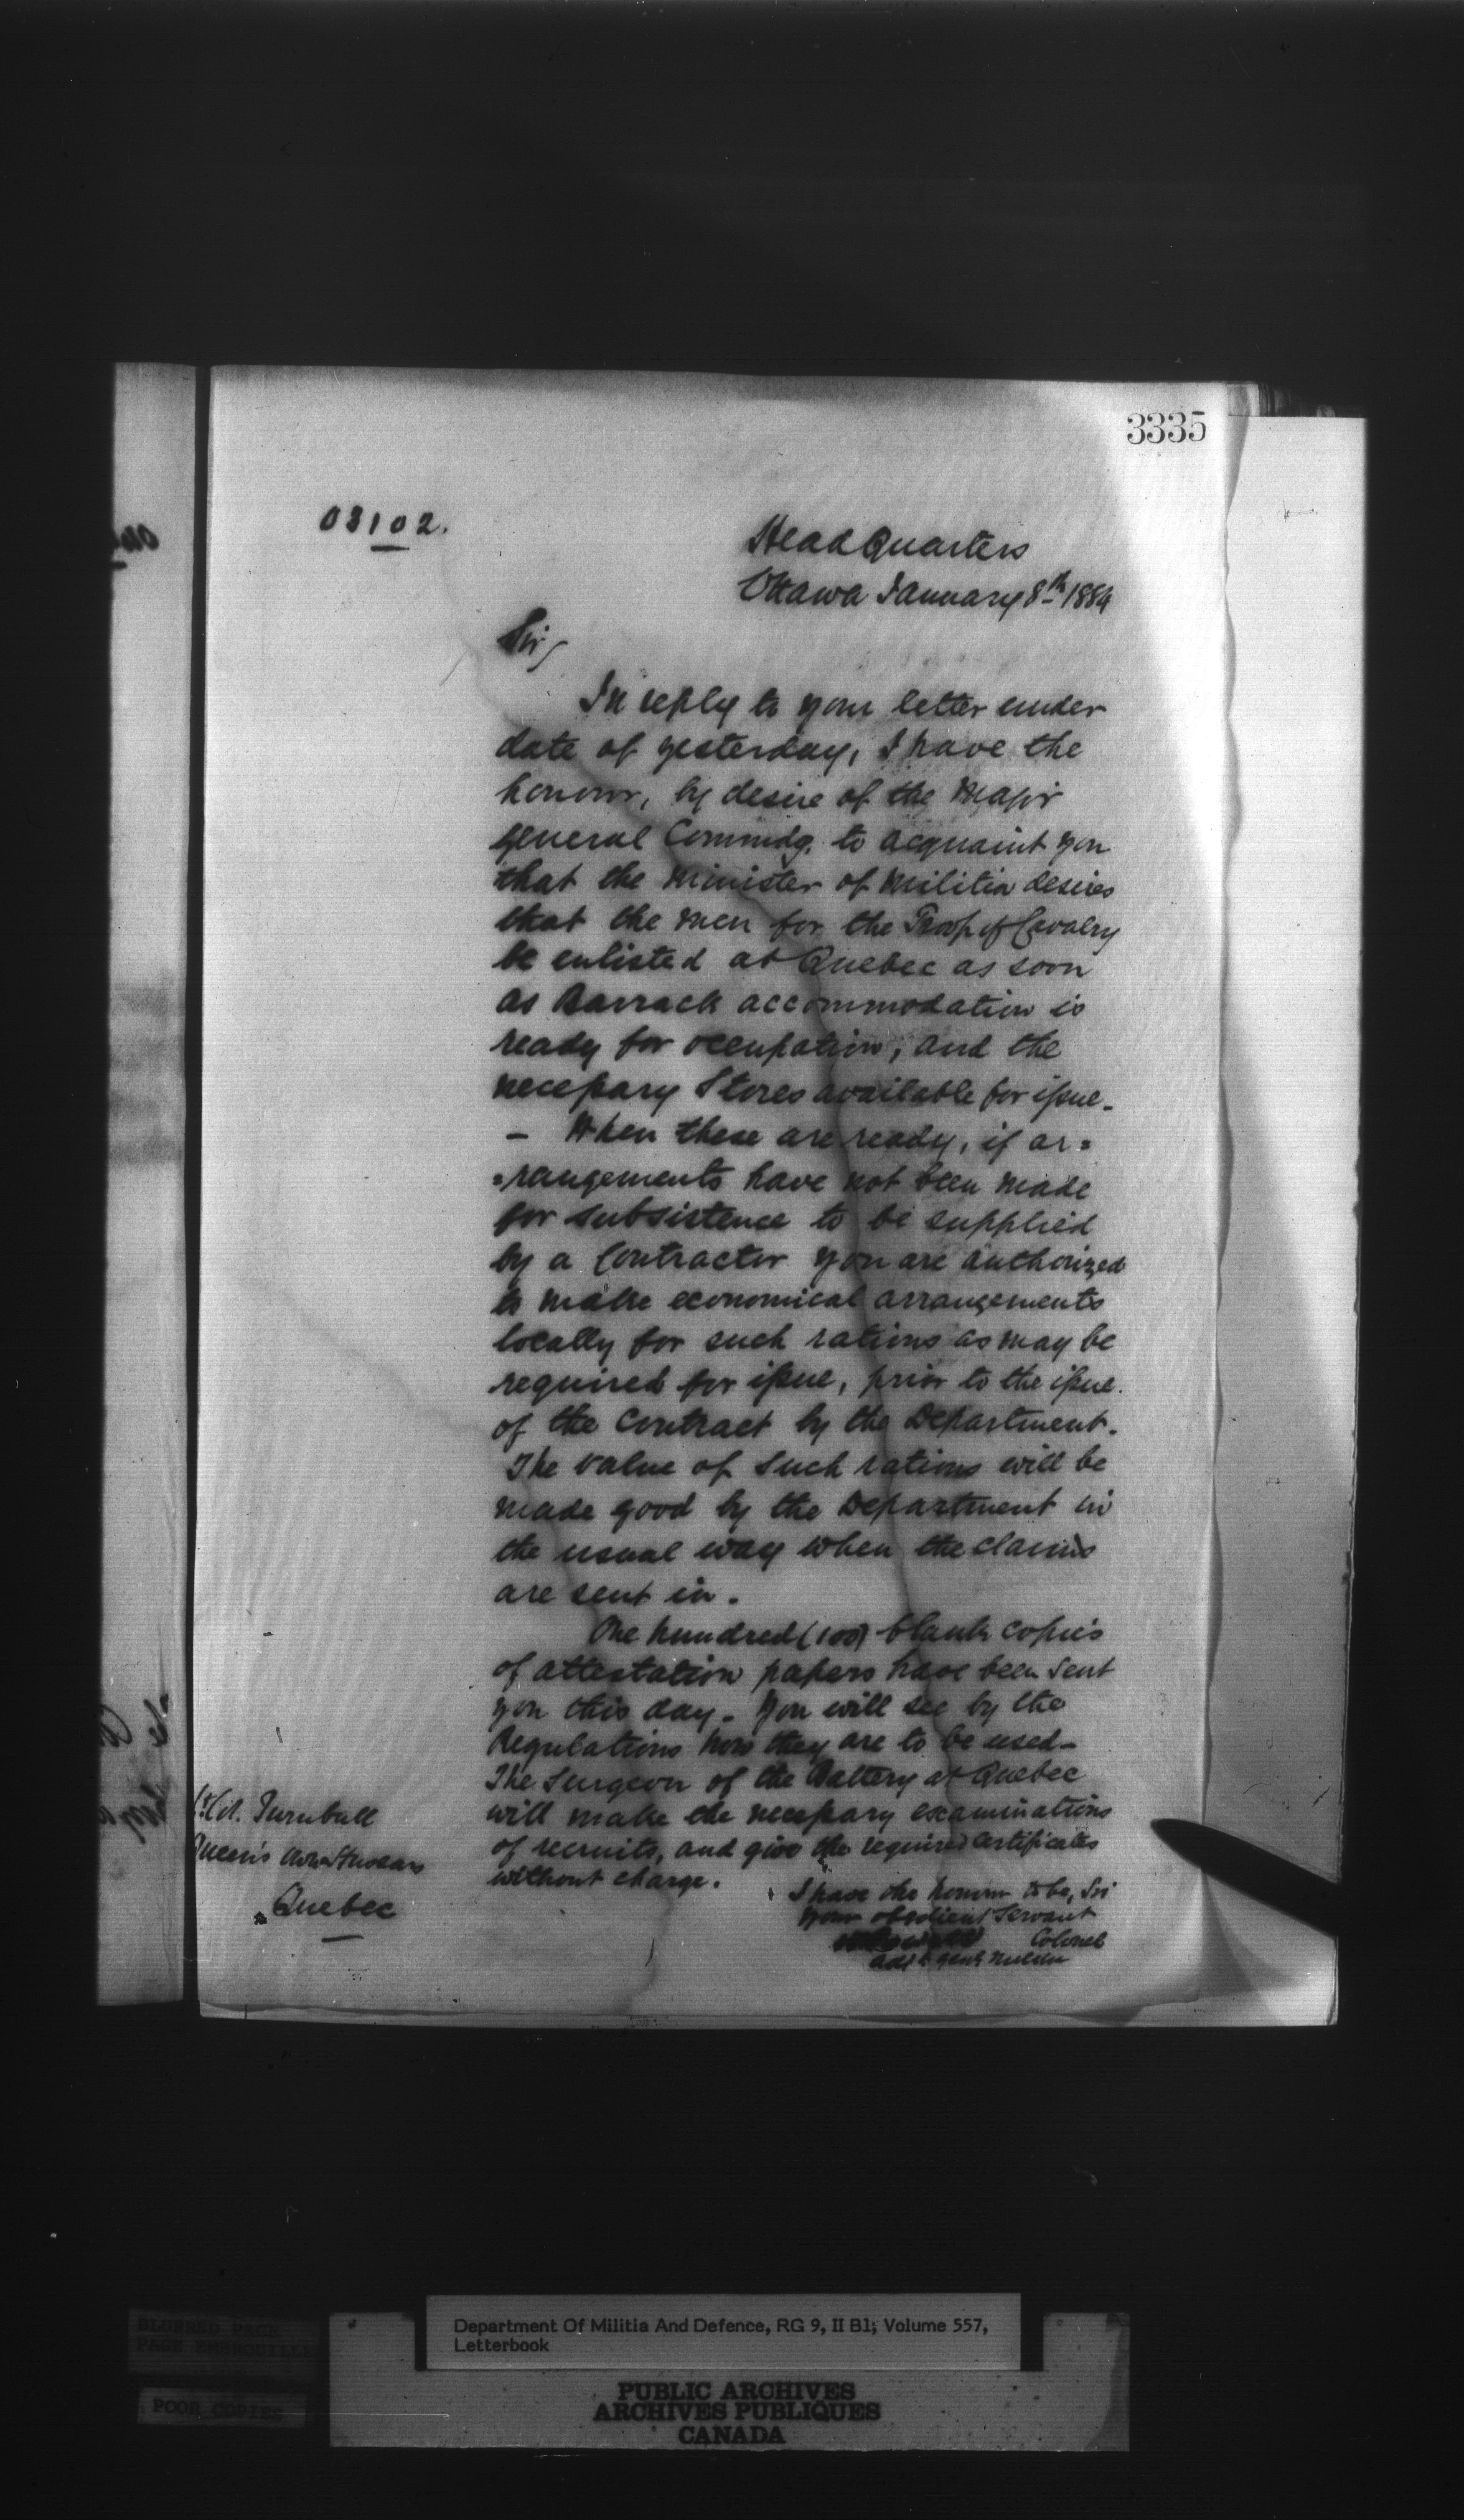 3335
03102.
Head Quarters
Ottawa January 8th 1884
Sir,
In reply to your letter under
date of yesterday, I have the
honour, by desire of the Major
General Commdg. to acquaint you
that the Minister of Militia desires
that the men for the Troop of Cavalry
be enlisted at Quebec as soon
as Barrack accommodation is
ready for occupation, and the
necessary Stores available for issue.
— When these are ready, if ar=
=rangements have not been made
for subsistence to be supplied
by a Contractor you are authorized
to make economical arrangements
locally for such rations as may be
required for issue, prior to the issue
of the Contract by the Department.
The value of such rations will be
made good by the Department in
the usual way when the claims
are sent in.
One hundred (100) blank copies
of attestation papers have been sent
you this day. You will see by the
Regulations how they are to be used—
The Surgeon of the Battery at Quebec
will make the necessary examinations
of recruits, and give the required certificates
without charge.
I have the honour to be, Sir
Your obedient Servant
Colonel
Adjt Genl Militia
Lt. Col. Turnbull
Queen's Own Hussars
Quebec
BLURRED PAGE
PAGE EMBROUILLEE
POOR COPIES
Department Of Militia And Defence, RG 9, II B1; Volume 557,
Letterbook
PUBLIC ARCHIVES
ARCHIVES PUBLIQUES
CANADA